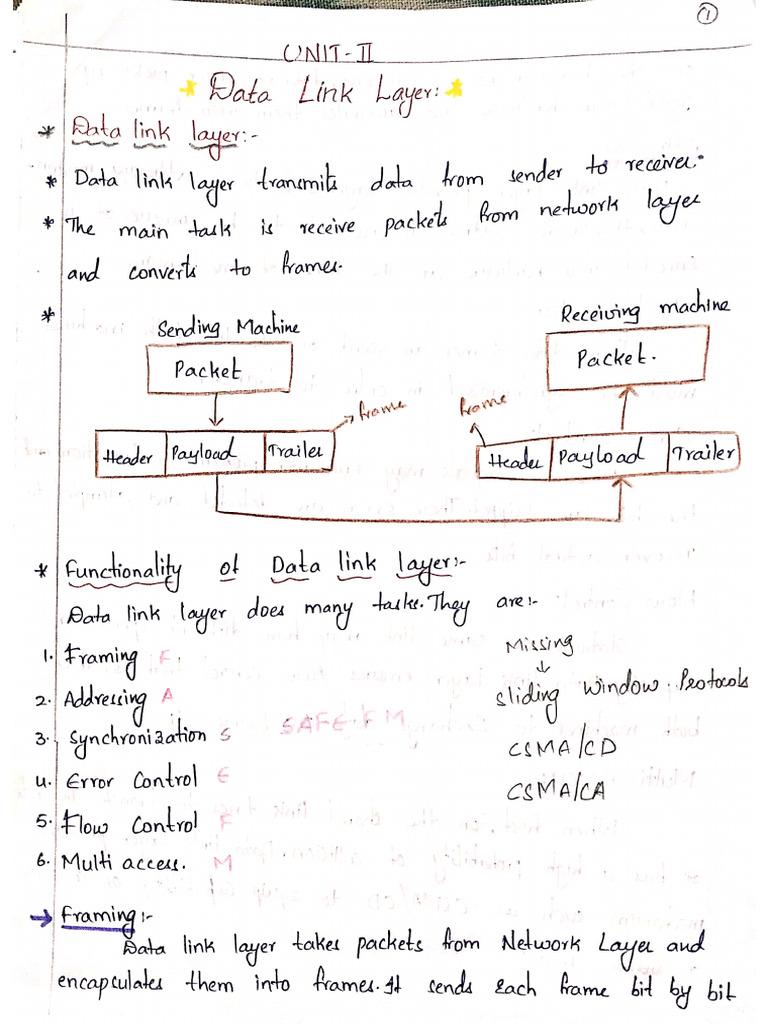 1
UNIT-II
* Data Link Layer: *
* Data link layer:-
* Data link layer transmits data from sender to receiver.
* The main task is receive packets from network layer
and converts to frames.
*
Sending Machine
Receiving machine
Packet
Packet.
frame
frame
Header Payload Trailer
Header Payload Trailer
* Functionality of Data link layer:-
Data link layer does many tasks. They are:-
1. Framing F
2. Addressing A
3. Synchronization S
4. Error Control E
5. Flow Control F
6. Multi access. M
SAFE F M
Missing
↓
sliding window Protocols
CSMA/CD
CSMA/CA
→ Framing:-
Data link layer takes packets from Network Layer and
encapsulates them into frames. It sends Each frame bit by bit